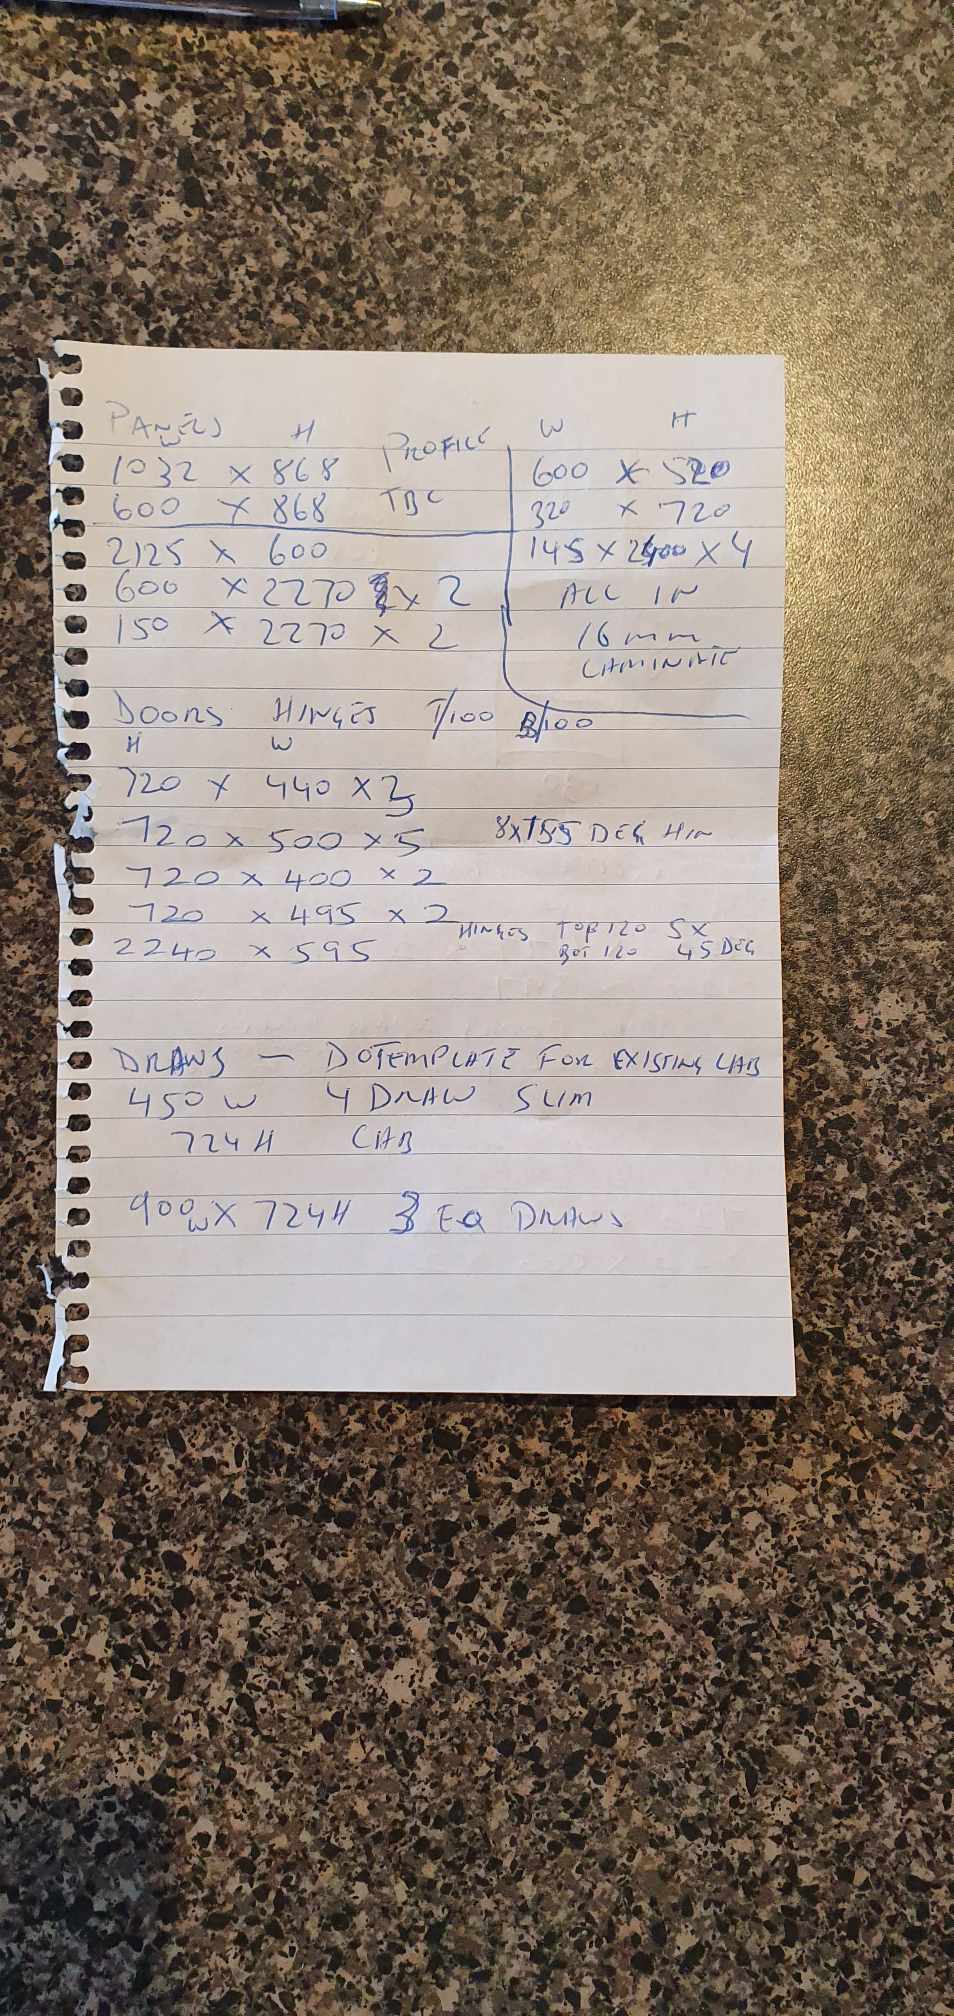 PANELS
W H
1032 x 868 PROFILE
600 x 868 TBC
2125 x 600
600 x 2270 x 2
150 x 2270 x 2
W H
600 x 520
320 x 720
145 x 2400 x 4
ALL IN
16mm
LAMINATE
DOORS HINGES T/100 B/100
H W
720 x 440 x
720 x 500 x 5 8x155 DEG HIN
720 x 400 x 2
720 x 495 x 2
2240 x 595 HINGES TOP 120 5X
BOT 120 45 DEG
DRAWS — DOTEMPLATE FOR EXISTING CAB
450 W 4 DRAW SLIM
724H CAB
900W X 724H 3 EQ DRAWS